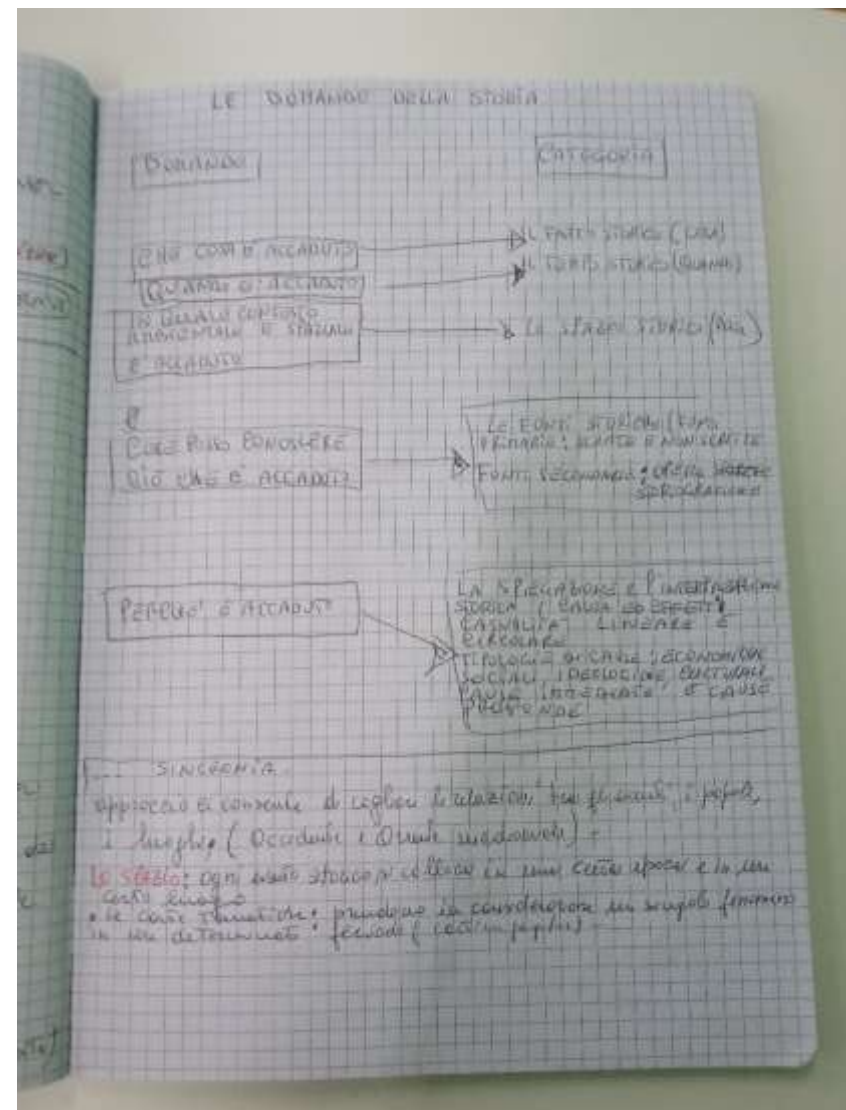 LE DOMANDE DELLA STORIA
DOMANDE
CATEGORIA
CHE COSA È ACCADUTO
IL FATTO STORICO (COSA)
QUANDO È ACCADUTO
IL TEMPO STORICO (QUANDO)
IN QUALE CONTESTO
AMBIENTALE E SPAZIALE
È ACCADUTO
LO SPAZIO STORICO
COME POSSO CONOSCERE
CIÒ CHE È ACCADUTO
LE FONTI STORICHE (FONTI
PRIMARIE: SCRITTE E NON SCRITTE
FONTI SECONDARIE: OPERE
STORIOGRAFICHE
PERCHÉ È ACCADUTO
LA SPIEGAZIONE E L'INTERPRETAZIONE
STORICA (CAUSA ED EFFETTI
CASUALITÀ LINEARE E
CIRCOLARE
TIPOLOGIE DI CAUSE: ECONOMICHE
SOCIALI, IDEOLOGICHE CULTURALI
CAUSE IMMEDIATE E CAUSE
PROFONDE
SINCRONIA
approccio ci consente di cogliere le relazioni tra fenomeni, i popoli,
i luoghi, (Occidente e Oriente medioevale)
Lo spazio: ogni evento storico si colloca in una certa epoca e in un
certo luogo
le carte tematiche: prendono in considerazione un singolo fenomeno
in un determinato periodo